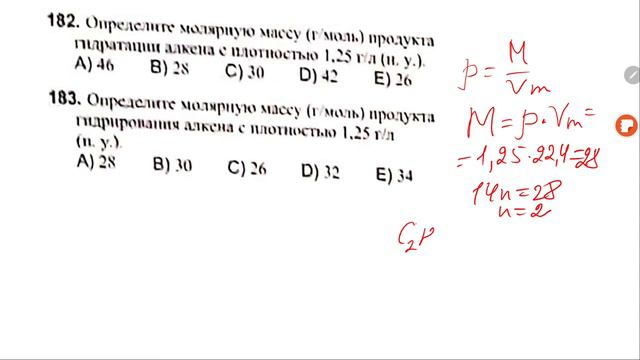 182. Определите молярную массу (г/моль) продукта
гидратации алкена с плотностью 1,25 г/л (н. у.).
A) 46 B) 28 C) 30 D) 42 E) 26
183. Определите молярную массу (г/моль) продукта
гидрирования алкена с плотностью 1,25 г/л
(н. у.).
A) 28 B) 30 C) 26 D) 32 E) 34
ρ = M / Vm
M = ρ · Vm =
= 1,25 · 22,4 = 28
14n = 28
n = 2
C₂H